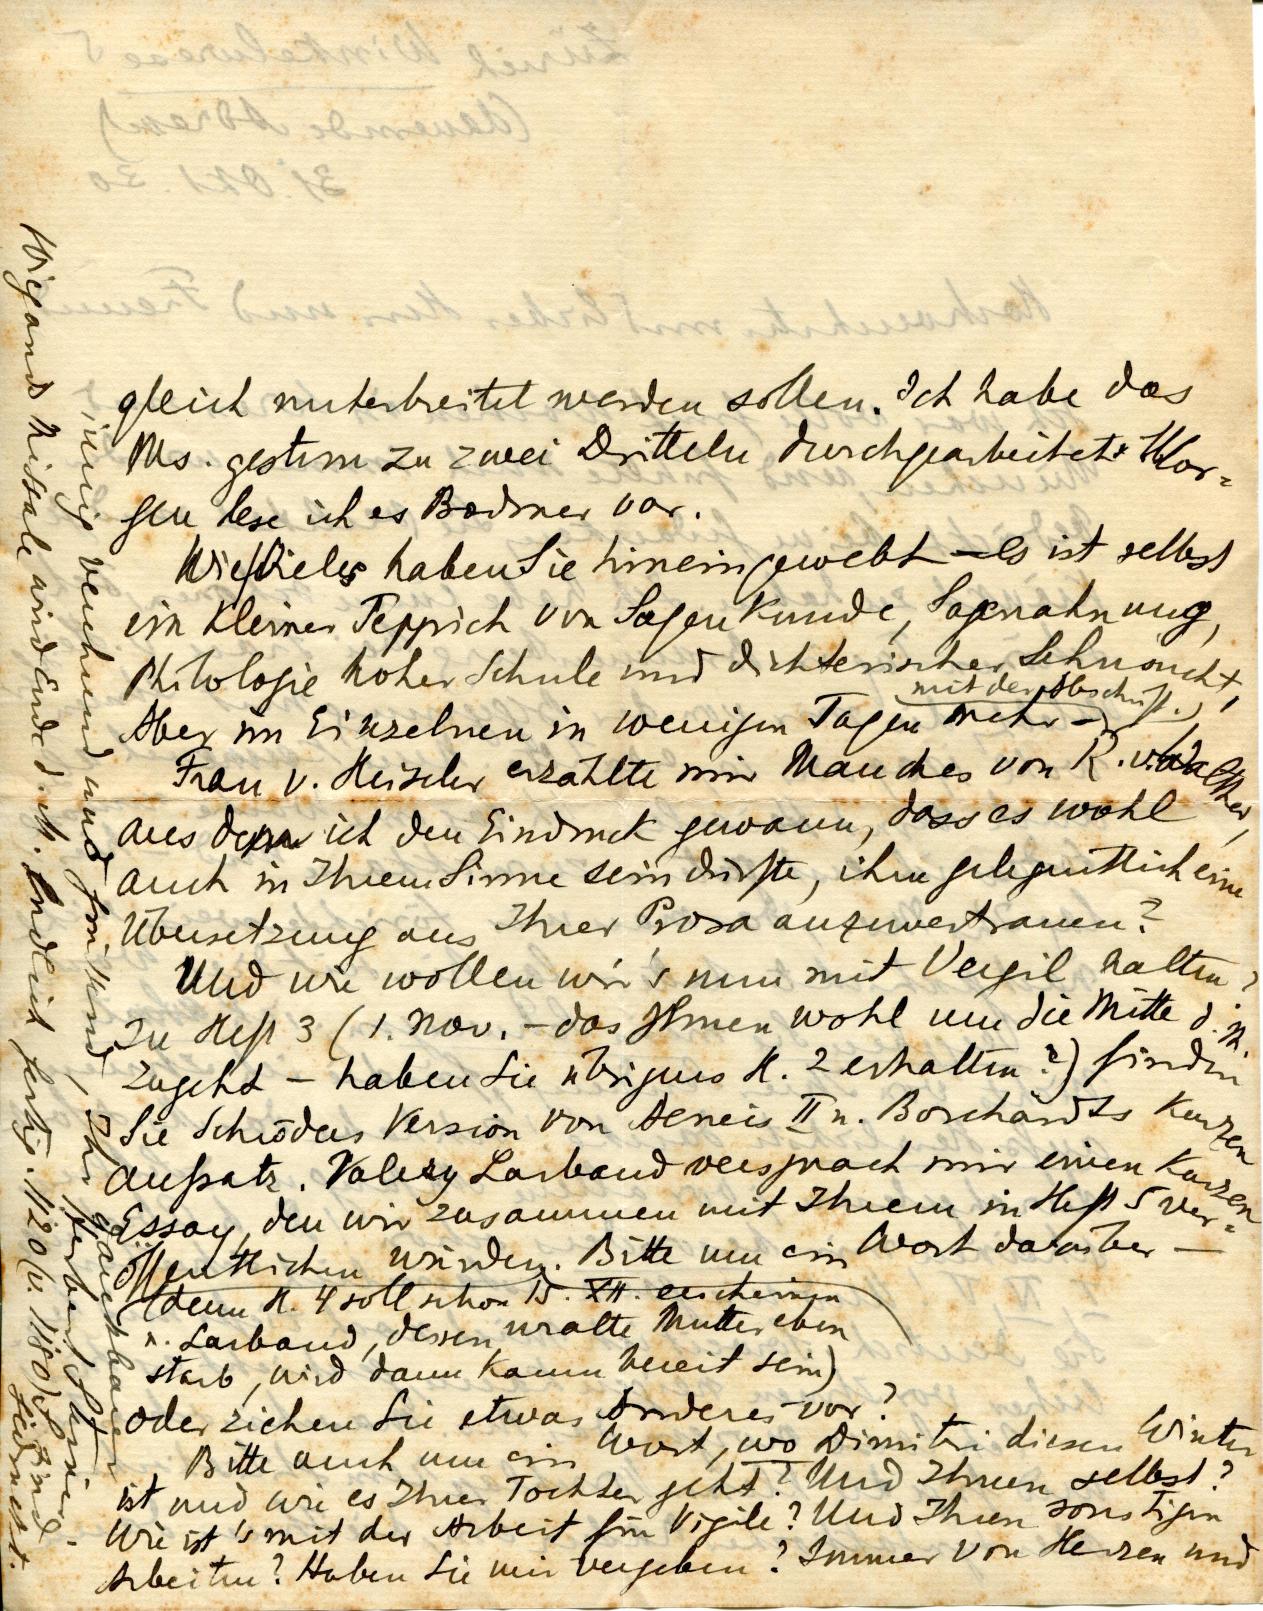 gleich unterbreitet werden sollen. Ich habe das
Ms. gestern zu zwei Dritteln durchgearbeitet. Mor-
gen lese ich es Bodmer vor.
Wie Vieles haben Sie hineingewebt – es ist selbst
ein kleiner Teppich von Sagenkunde, Sagenahnung,
Philologie hoher Schule und dichterischer Sehnsucht,
Aber im Einzelnen in wenigen Tagen mehr – (mit der Abschrift.)
Frau v. Heiseler erzählte mir Manches von R. v. Walther,
aus dem ich den Eindruck gewann, dass es wohl
auch in Ihrem Sinne sein dürfte, ihm gelegentlich eine
Übersetzung aus Ihrer Prosa anzuvertrauen?
Und wie wollen wir's nun mit Vergil halten?
Zu Heft 3 (1. Nov. – das Ihnen wohl um die Mitte d. M.
zugeht – haben Sie übrigens H. 2 erhalten?) finden
Sie Schröders Version von Aeneis II u. Borchardts kurzen
Aufsatz. Valery Larbaud versprach mir einen kurzen
Essay, den wir zusammen mit Ihrem in Heft 5 ver-
öffentlichen würden. Bitte um ein Wort darüber –
(denn H. 4 soll schon 15. XII. erscheinen
u. Larbaud, dessen uralte Mutter eben
starb, wird dann kaum bereit sein)
oder ziehen Sie etwas Anderes vor?
Bitte auch um ein Wort, wo Dimitri diesen Winter
ist und wie es Ihrer Tochter geht? Und Ihnen selbst?
Wie ist's mit der Arbeit für Vigile? Und Ihren sonstigen
Arbeiten? Haben Sie mir vergeben? Immer von Herzen und
innig verehrend und Ihr dankbarer
Herbert Steiner.
Wiegands Missale wird Ende d. M. endlich fertig. M 120 (u. 180)